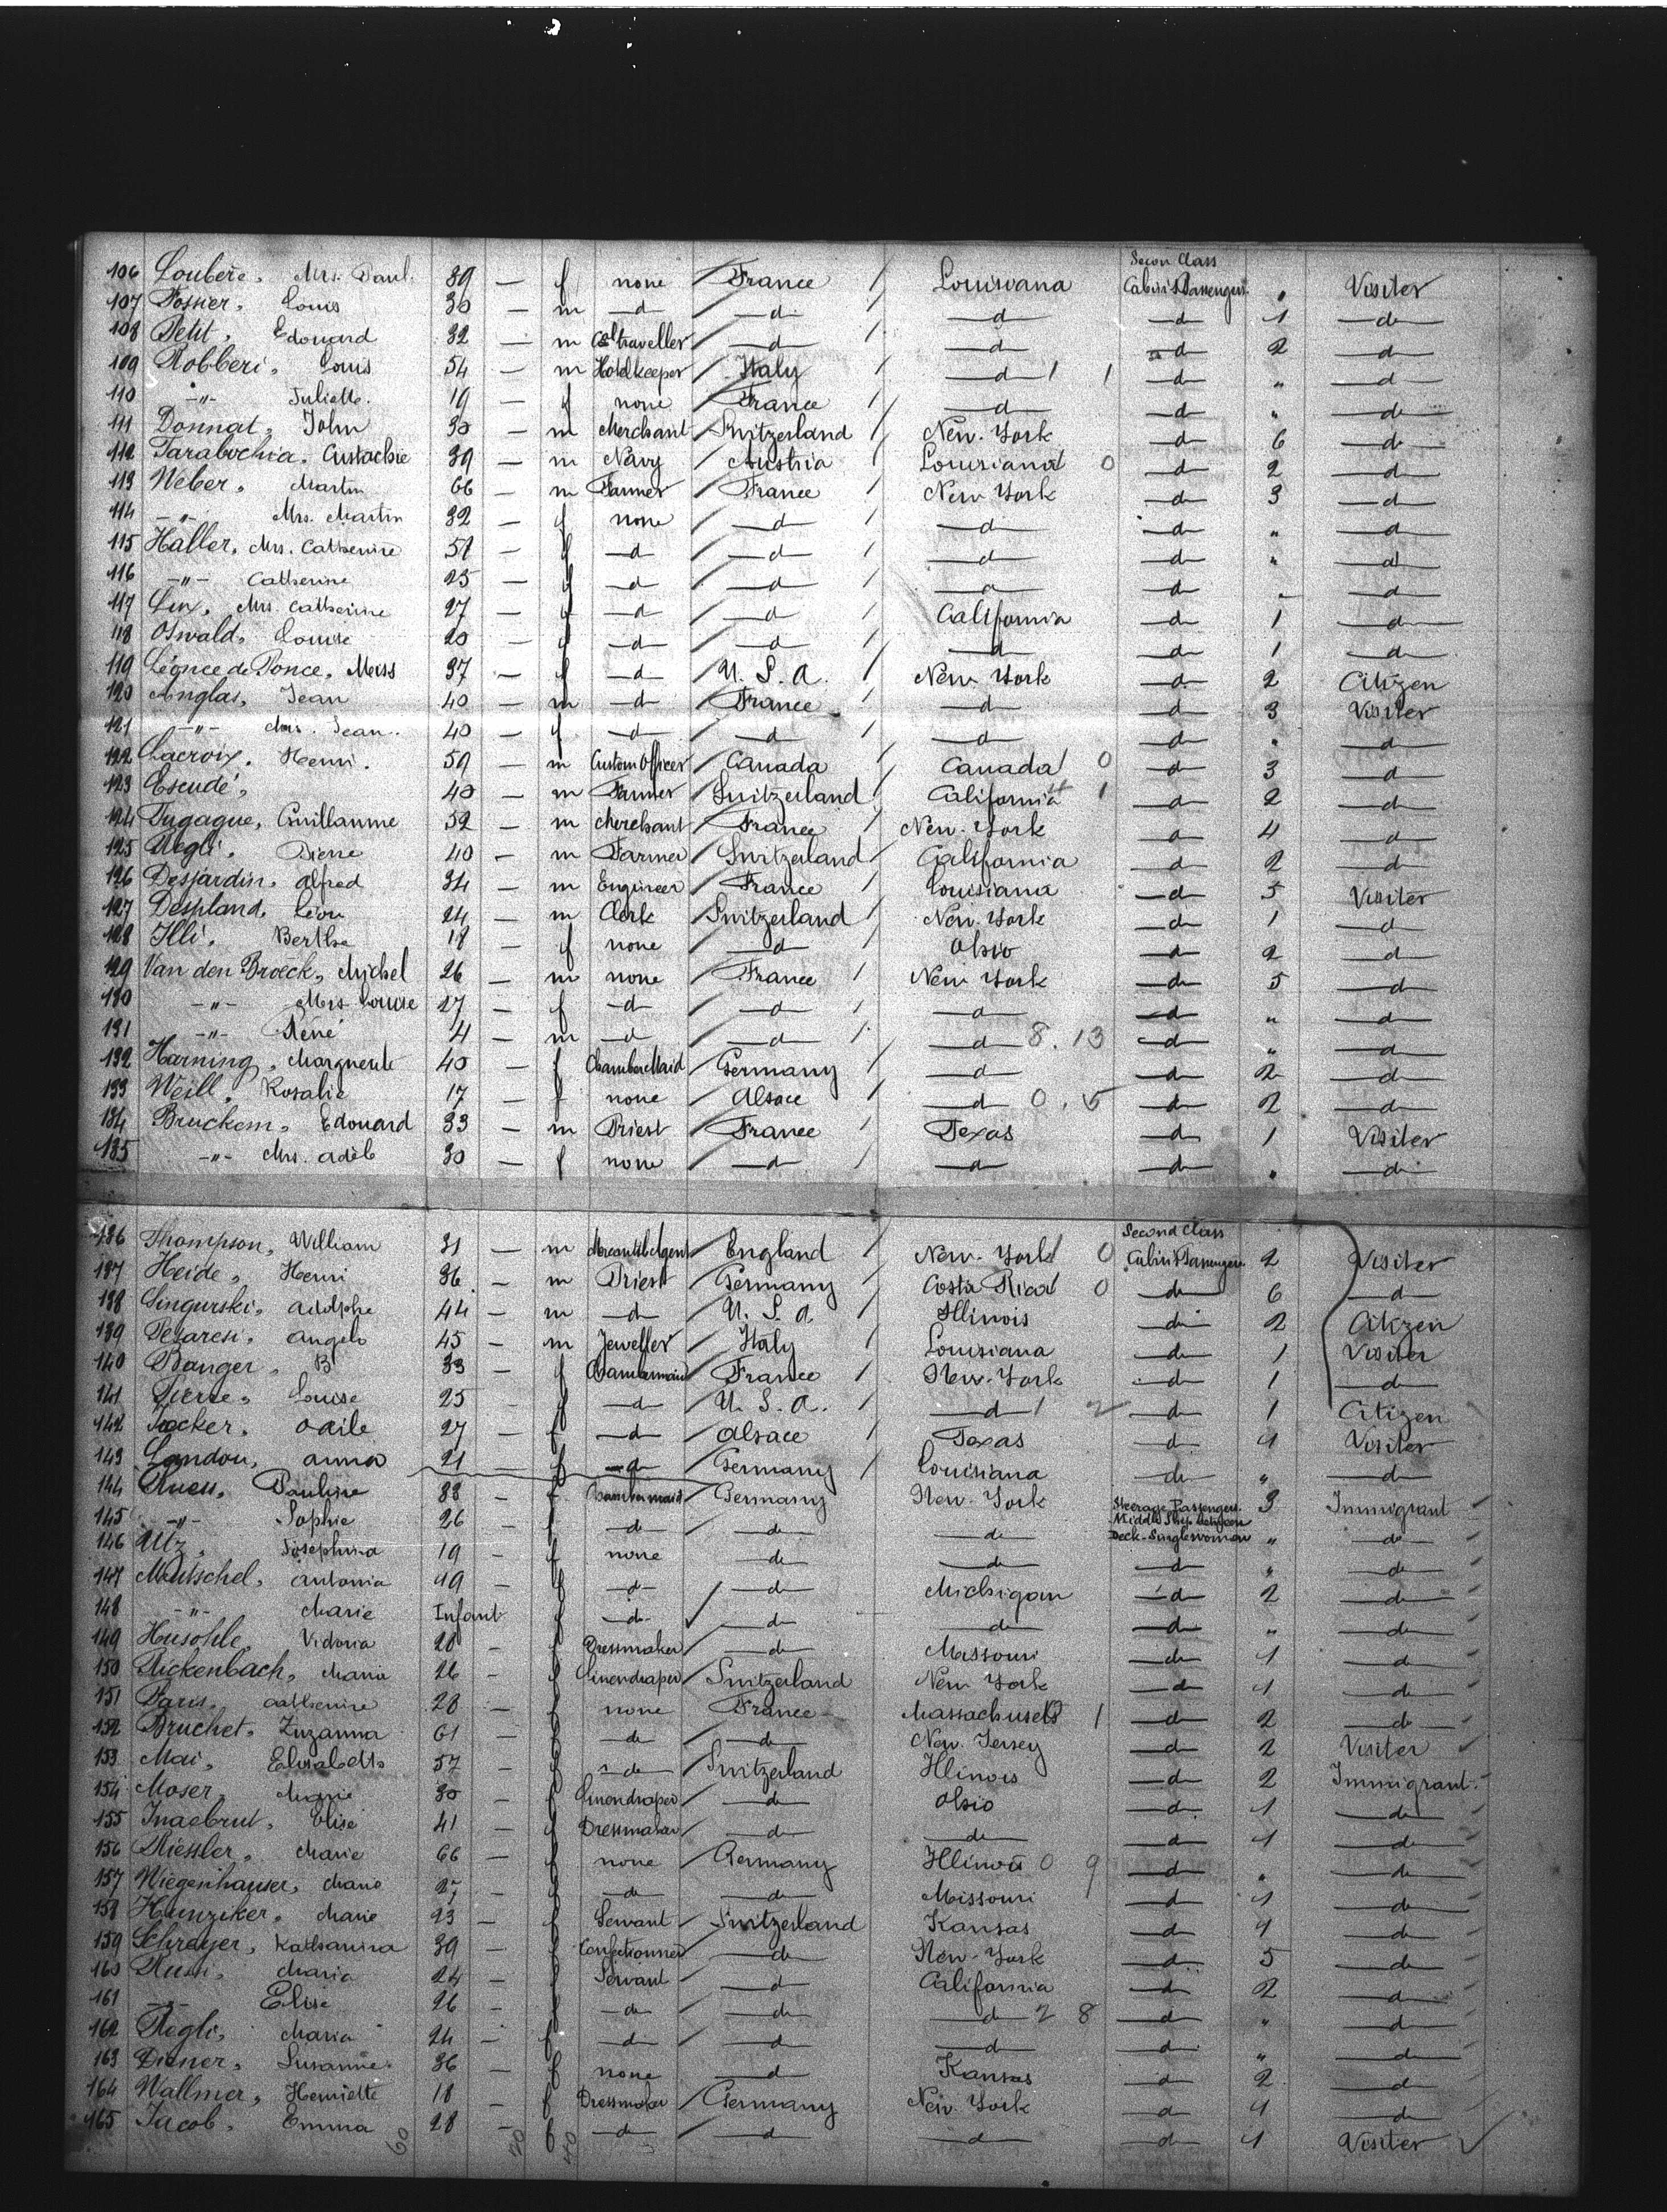 Secon Class
106 Loubère, Mrs. Paul. 39 — f none France Louisiana Cabin's Passengers " Visiter
107 Possier, Louis 30 — m —d —d —d —d 1 —d
108 Petit, Edouard 32 — m traveller —d —d —d 2 —d
109 Robberi, Louis 54 — m Hotelkeeper Italy —d 1 1 —d " —d
110 —"— Juliette. 19 — f none France —d —d " —d
111 Donnat, John 30 — m Merchant Switzerland New-York —d 6 —d
112 Tarabochia, Eustachie 39 — m Navy Austria Louisiana 0 —d 2 —d
113 Weber, Martin 66 — m Farmer France New York —d 3 —d
114 —"— Mrs. Martin 32 — f none —d —d —d " —d
115 Haller, Mrs. Catherine 51 — f —d —d —d —d " —d
116 —"— Catherine 25 — f —d —d —d —d " —d
117 Lux, Mrs. Catherine 27 — f —d —d California —d 1 —d
118 Oswald, Louise 20 — f —d —d —d —d 1 —d
119 Léonce de Ponce, Miss 37 — f —d U. S. A. New. York —d 2 Citizen
120 Anglas, Jean 40 — m —d France —d —d 3 Visiter
121 —"— Mrs. Jean. 40 — f —d —d —d —d " —d
122 Lacroix, Henri. 59 — m Custom Officer Canada Canada 0 —d 3 —d
123 Escudé, 40 — m Farmer Switzerland California 1 —d 2 —d
124 Dugague, Guillaume 52 — m Merchant France New-York —d 4 —d
125 Pierre 40 — m Farmer Switzerland California —d 2 —d
126 Desjardin, Alfred 34 — m Engineer France Louisiana —d 5 Visiter
127 Despland, Léon 24 — m Clerk Switzerland New. York —d 1 —d
128 Illi, Berthe 18 — f none —d Ohio —d 2 —d
129 Van den Broeck, Michel 26 — m none France New York —d 5 —d
130 —"— Mrs Louise 27 — f —d —d —d —d " —d
131 —"— Réné 4 — m —d —d —d 8. 13 —d " —d
132 Harning, Marguerite 40 — f ChamberMaid Germany —d —d 2 —d
133 Weill, Rosalie 17 — f none Alsace —d 0. 5 —d 2 —d
134 Bruckem, Edouard 33 — m Priest France Texas —d 1 Visiter
135 —"— Mrs. Adèle 30 — f none —d —d —d " —d
Second Class
136 Thompson, William 31 — m England New-York 0 Cabin's Passengers 2 Visiter
137 Heide, Henri 36 — m Priest Germany Costa Rica 0 —d 6 —d
138 Singurski, Adolphe 44 — m —d U. S. A. Illinois —d 2 Citizen
139 Pesaresi, Angelo 45 — m Jeweller Italy Louisiana —d 1 Visiter
140 Banger, B 33 — f Chambermaid France New-York —d 1 —d
141 Pierre, Louise 25 — f —d U. S. A. —d 1 2 —d 1 Citizen
142 Jacker, Odile 27 — f —d Alsace Texas —d 1 Visiter
143 Landou, Anna 21 — f —d Germany Louisiana —d " —d
144 Ruess, Pauline 38 — f Chambermaid Germany New-York Steerage Passengers 3 Immigrant
Middle Ship between
145 —"— Sophie 26 — f —d —d —d Deck-Singlewomen " —d
146 Utz, Josephina 19 f none —d —d —d " —d
147 Mutschel, Antonia 49 — f —d —d Michigan —d 2 —d
148 —"— Marie Infant f —d —d —d —d " —d
149 Husohle, Victoria 20 — f Dressmaker —d Missouri —d 1 —d
150 Rickenbach, Maria 26 — f Linendraper Switzerland New York —d 1 —d
151 Paris, Catherine 28 — f none France Massachusets 1 —d 2 —d
152 Bruchet, Zuzanna 61 f —d —d New. Jersey —d 2 Visiter
153 Mai, Elisabeth 57 — f —d Switzerland Illinois —d 2 Immigrant
154 Moser, Marie 30 — f Linendraper —d Ohio —d 1 —d
155 Inaebrut, Elise 41 — f Dressmaker —d —d —d 1 —d
156 Riessler, Marie 66 — f none Germany Illinois 0 9 —d " —d
157 Wiegenhauser, Marie 27 — f —d —d Missouri —d 1 —d
158 Hunziker, Marie 23 — f Servant Switzerland Kansas —d 1 —d
159 Schreyer, Katharina 39 — f Confectionner —d New-York —d 5 —d
160 Russi, Maria 24 — f Servant —d California —d 2 —d
161 —"— Elise 26 — f —d —d —d 2 8 —d " —d
162 Regli, Maria 24 — f —d —d —d —d " —d
163 Diener, Susanne. 36 — f none —d Kansas —d 2 —d
164 Wallmer, Henriette 18 — f Dressmaker Germany New. York —d 1 —d
165 Jacob, Emma 28 — f —d —d —d —d 1 Visiter
60